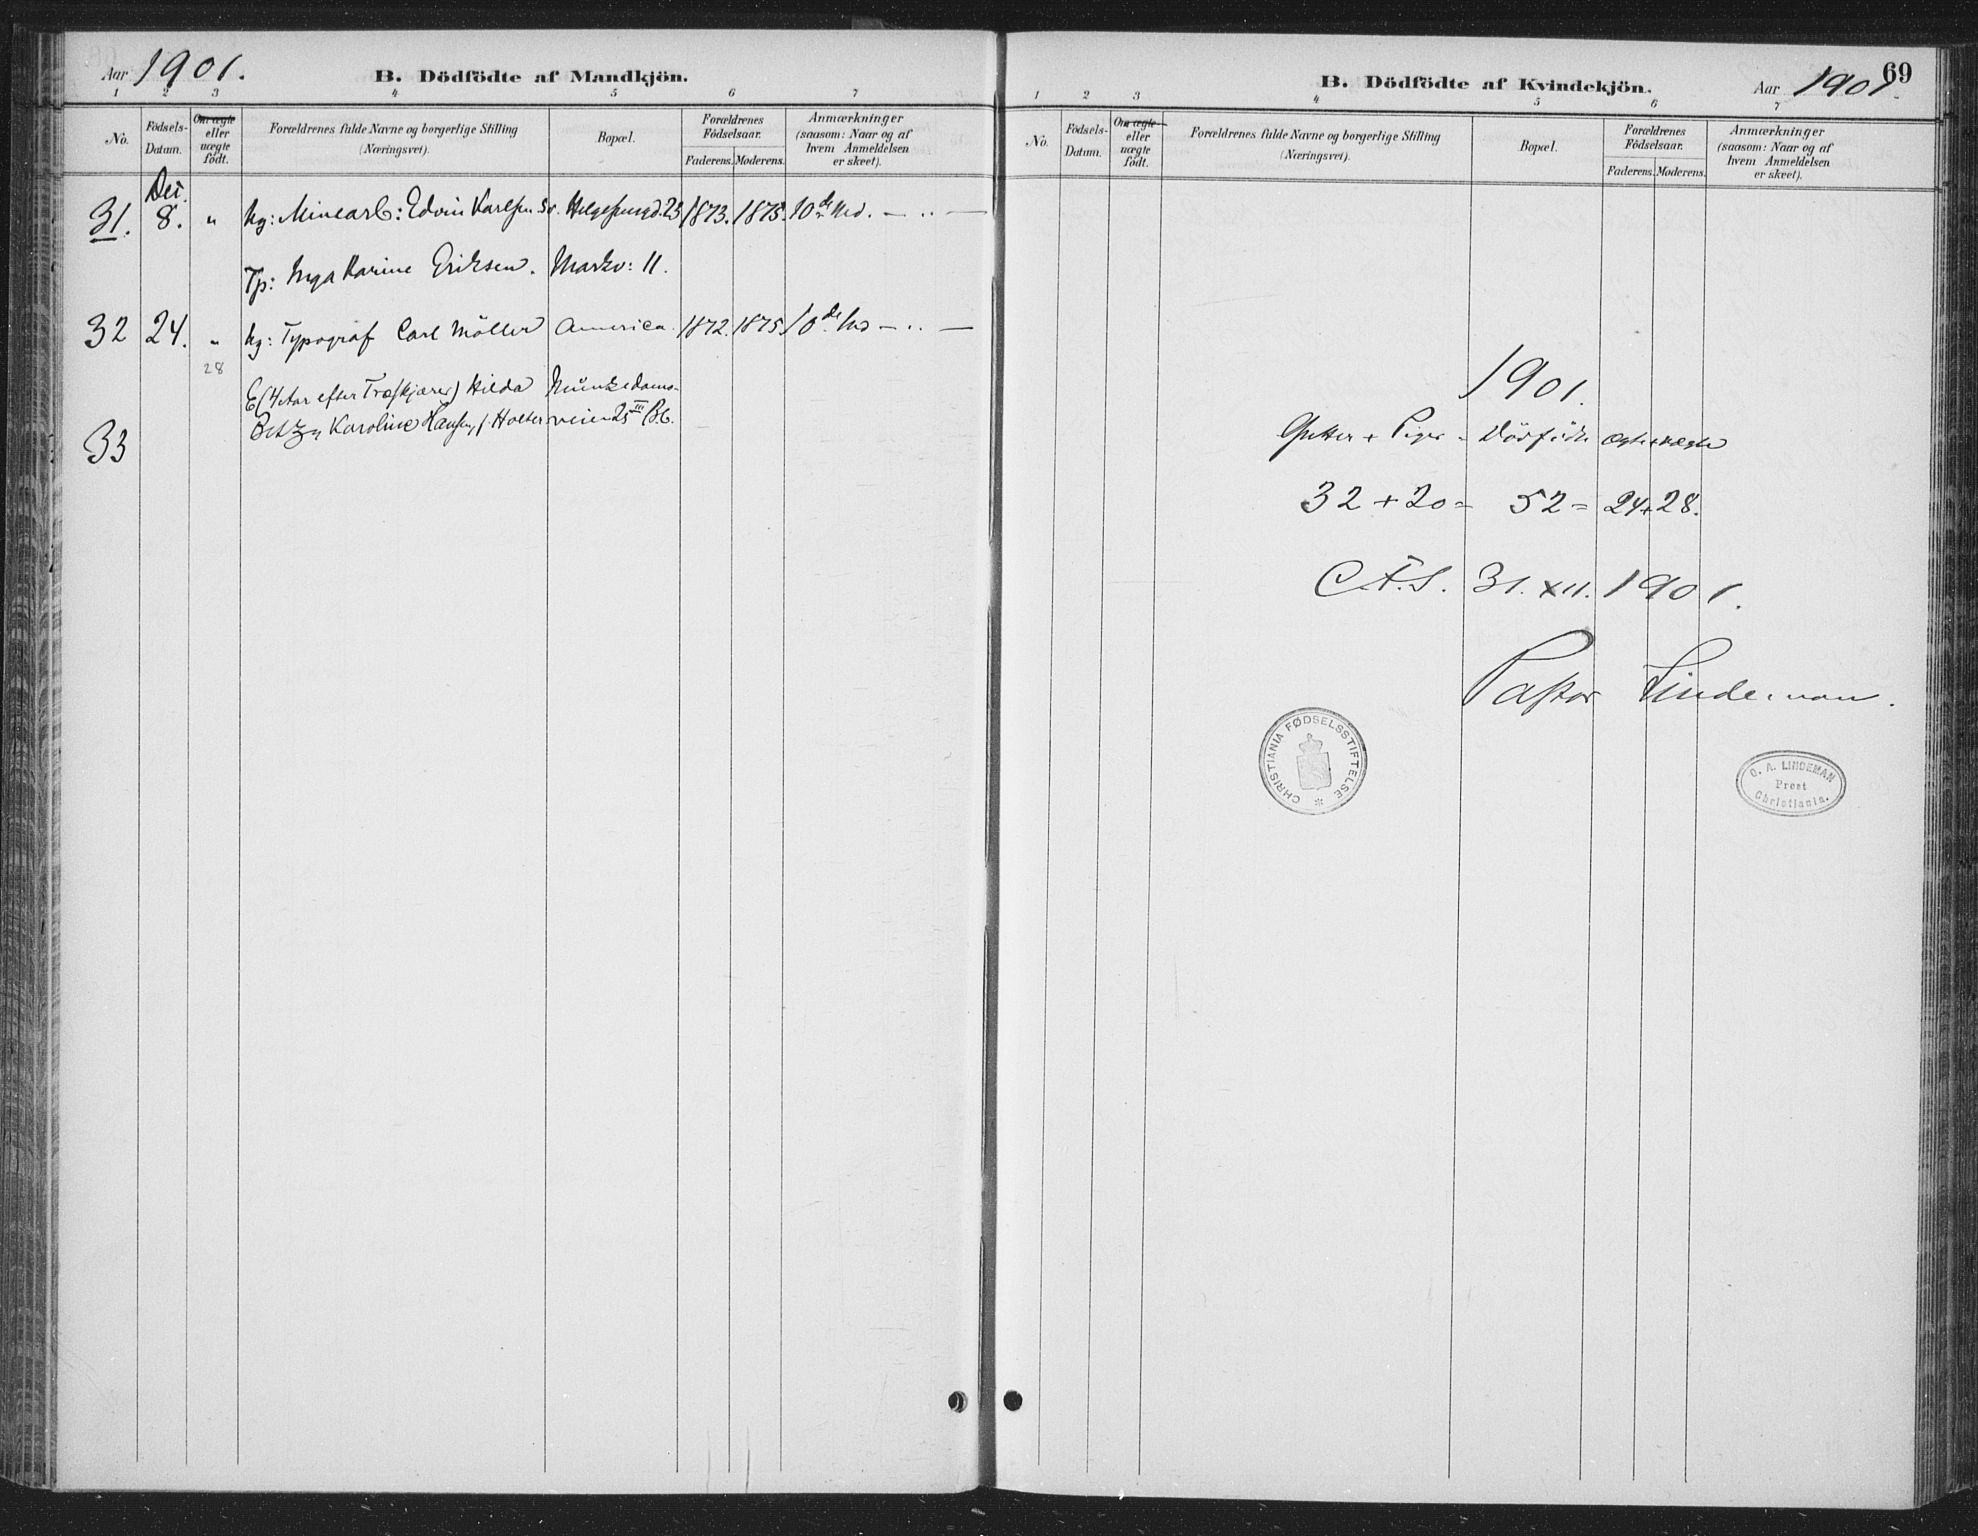 Aar 1901.
B. Dödfödte af Mandkjön.
1 2 3 4 5 6 7
No.
Fødsels-
Datum.
Om ægte
eller
uægte
født.
Forældrenes fulde Navne og borgerlige Stilling
(Næringsvei).
Bopæl.
Forældrenes
Fødselsaar.
Faderens. Moderens.
Anmærkninger
(saasom: Naar og af
hvem Anmeldelsen
er skeet).
Dec.
31. 8. " Ug: Minearb: Edvin Karlsen 1873. 1875. 10de
Tp: Inga Karine Eriksen. Markv: 11.
32 24. " Ug: Typograf Carl Möller America. 1872. 1875 10de
28
E (4 Aar efter Hilda Munkedams-
Karoline Hansen f. Holter veien 25 III B.G.
33
B. Dödfödte af Kvindekjön.
Aar 1901.
69
1 2 3 4 5 6 7
No.
Fødsels-
Datum.
Om ægte
eller
uægte
født.
Forældrenes fulde Navne og borgerlige Stilling
(Næringsvei).
Bopæl.
Forældrenes
Fødselsaar.
Faderens. Moderens.
Anmærkninger
(saasom: Naar og af
hvem Anmeldelsen
er skeet).
1901.
Gutter + Piger = Dödfödte ægte + uægte
32 + 20 = 52 = 24 + 28.
C.F.S. 31. XII. 1901.
Pastor Lindeman.
CHRISTIANIA FØDSELSSTIFTELSE
O. A. LINDEMAN
Prest
Christiania.